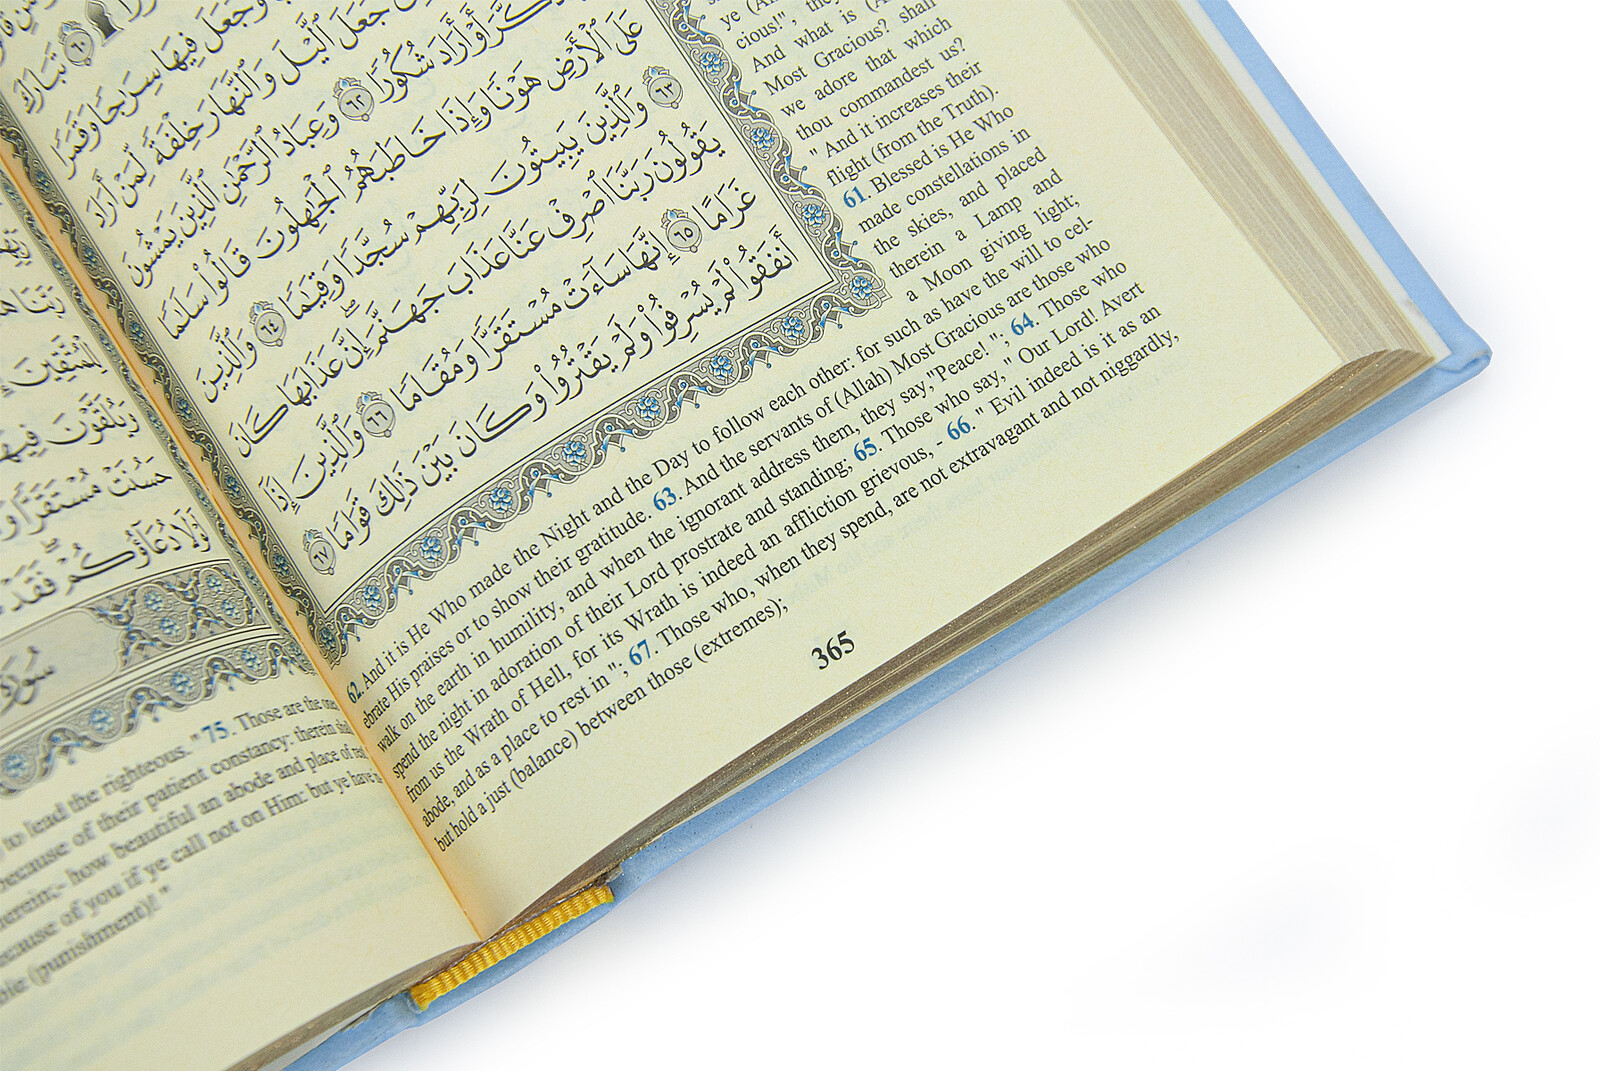 تَبَارَكَ
وَجَعَلَ فِيهَا سِرَٰجًا وَقَمَرًا
جَعَلَ ٱلَّيْلَ وَٱلنَّهَارَ خِلْفَةً لِّمَنْ أَرَادَ
أَوْ أَرَادَ شُكُورًا ٦٢ وَعِبَادُ ٱلرَّحْمَٰنِ ٱلَّذِينَ يَمْشُونَ
عَلَى ٱلْأَرْضِ هَوْنًا وَإِذَا خَاطَبَهُمُ ٱلْجَٰهِلُونَ قَالُوا۟ سَلَٰمًا
٦٣ وَٱلَّذِينَ يَبِيتُونَ لِرَبِّهِمْ سُجَّدًا وَقِيَٰمًا ٦٤ وَٱلَّذِينَ
يَقُولُونَ رَبَّنَا ٱصْرِفْ عَنَّا عَذَابَ جَهَنَّمَ ۖ إِنَّ عَذَابَهَا كَانَ
غَرَامًا ٦٥ إِنَّهَا سَآءَتْ مُسْتَقَرًّا وَمُقَامًا ٦٦ وَٱلَّذِينَ إِذَآ
أَنفَقُوا۟ لَمْ يُسْرِفُوا۟ وَلَمْ يَقْتُرُوا۟ وَكَانَ بَيْنَ ذَٰلِكَ قَوَامًا ٦٧
And what is
Most Gracious? shall
we adore that which
thou commandest us?
" And it increases their
flight (from the Truth).
61. Blessed is He Who
made constellations in
the skies, and placed
therein a Lamp and
a Moon giving light;
62. And it is He Who made the Night and the Day to follow each other: for such as have the will to cel-
ebrate His praises or to show their gratitude. 63. And the servants of (Allah) Most Gracious are those who
walk on the earth in humility, and when the ignorant address them, they say,"Peace! "; 64. Those who
spend the night in adoration of their Lord prostrate and standing; 65. Those who say, " Our Lord! Avert
from us the Wrath of Hell, for its Wrath is indeed an affliction grievous, - 66. " Evil indeed is it as an
abode, and as a place to rest in "; 67. Those who, when they spend, are not extravagant and not niggardly,
but hold a just (balance) between those (extremes);
365
حَسُنَتْ مُسْتَقَرًّا
دُعَآؤُكُمْ ۖ فَقَدْ
سُورَةُ
to lead the righteous. " 75. Those are the
because of their patient constancy: therein
therein;- how beautiful an abode and place of
because of you if ye call not on Him: but ye have
(punishment)! "